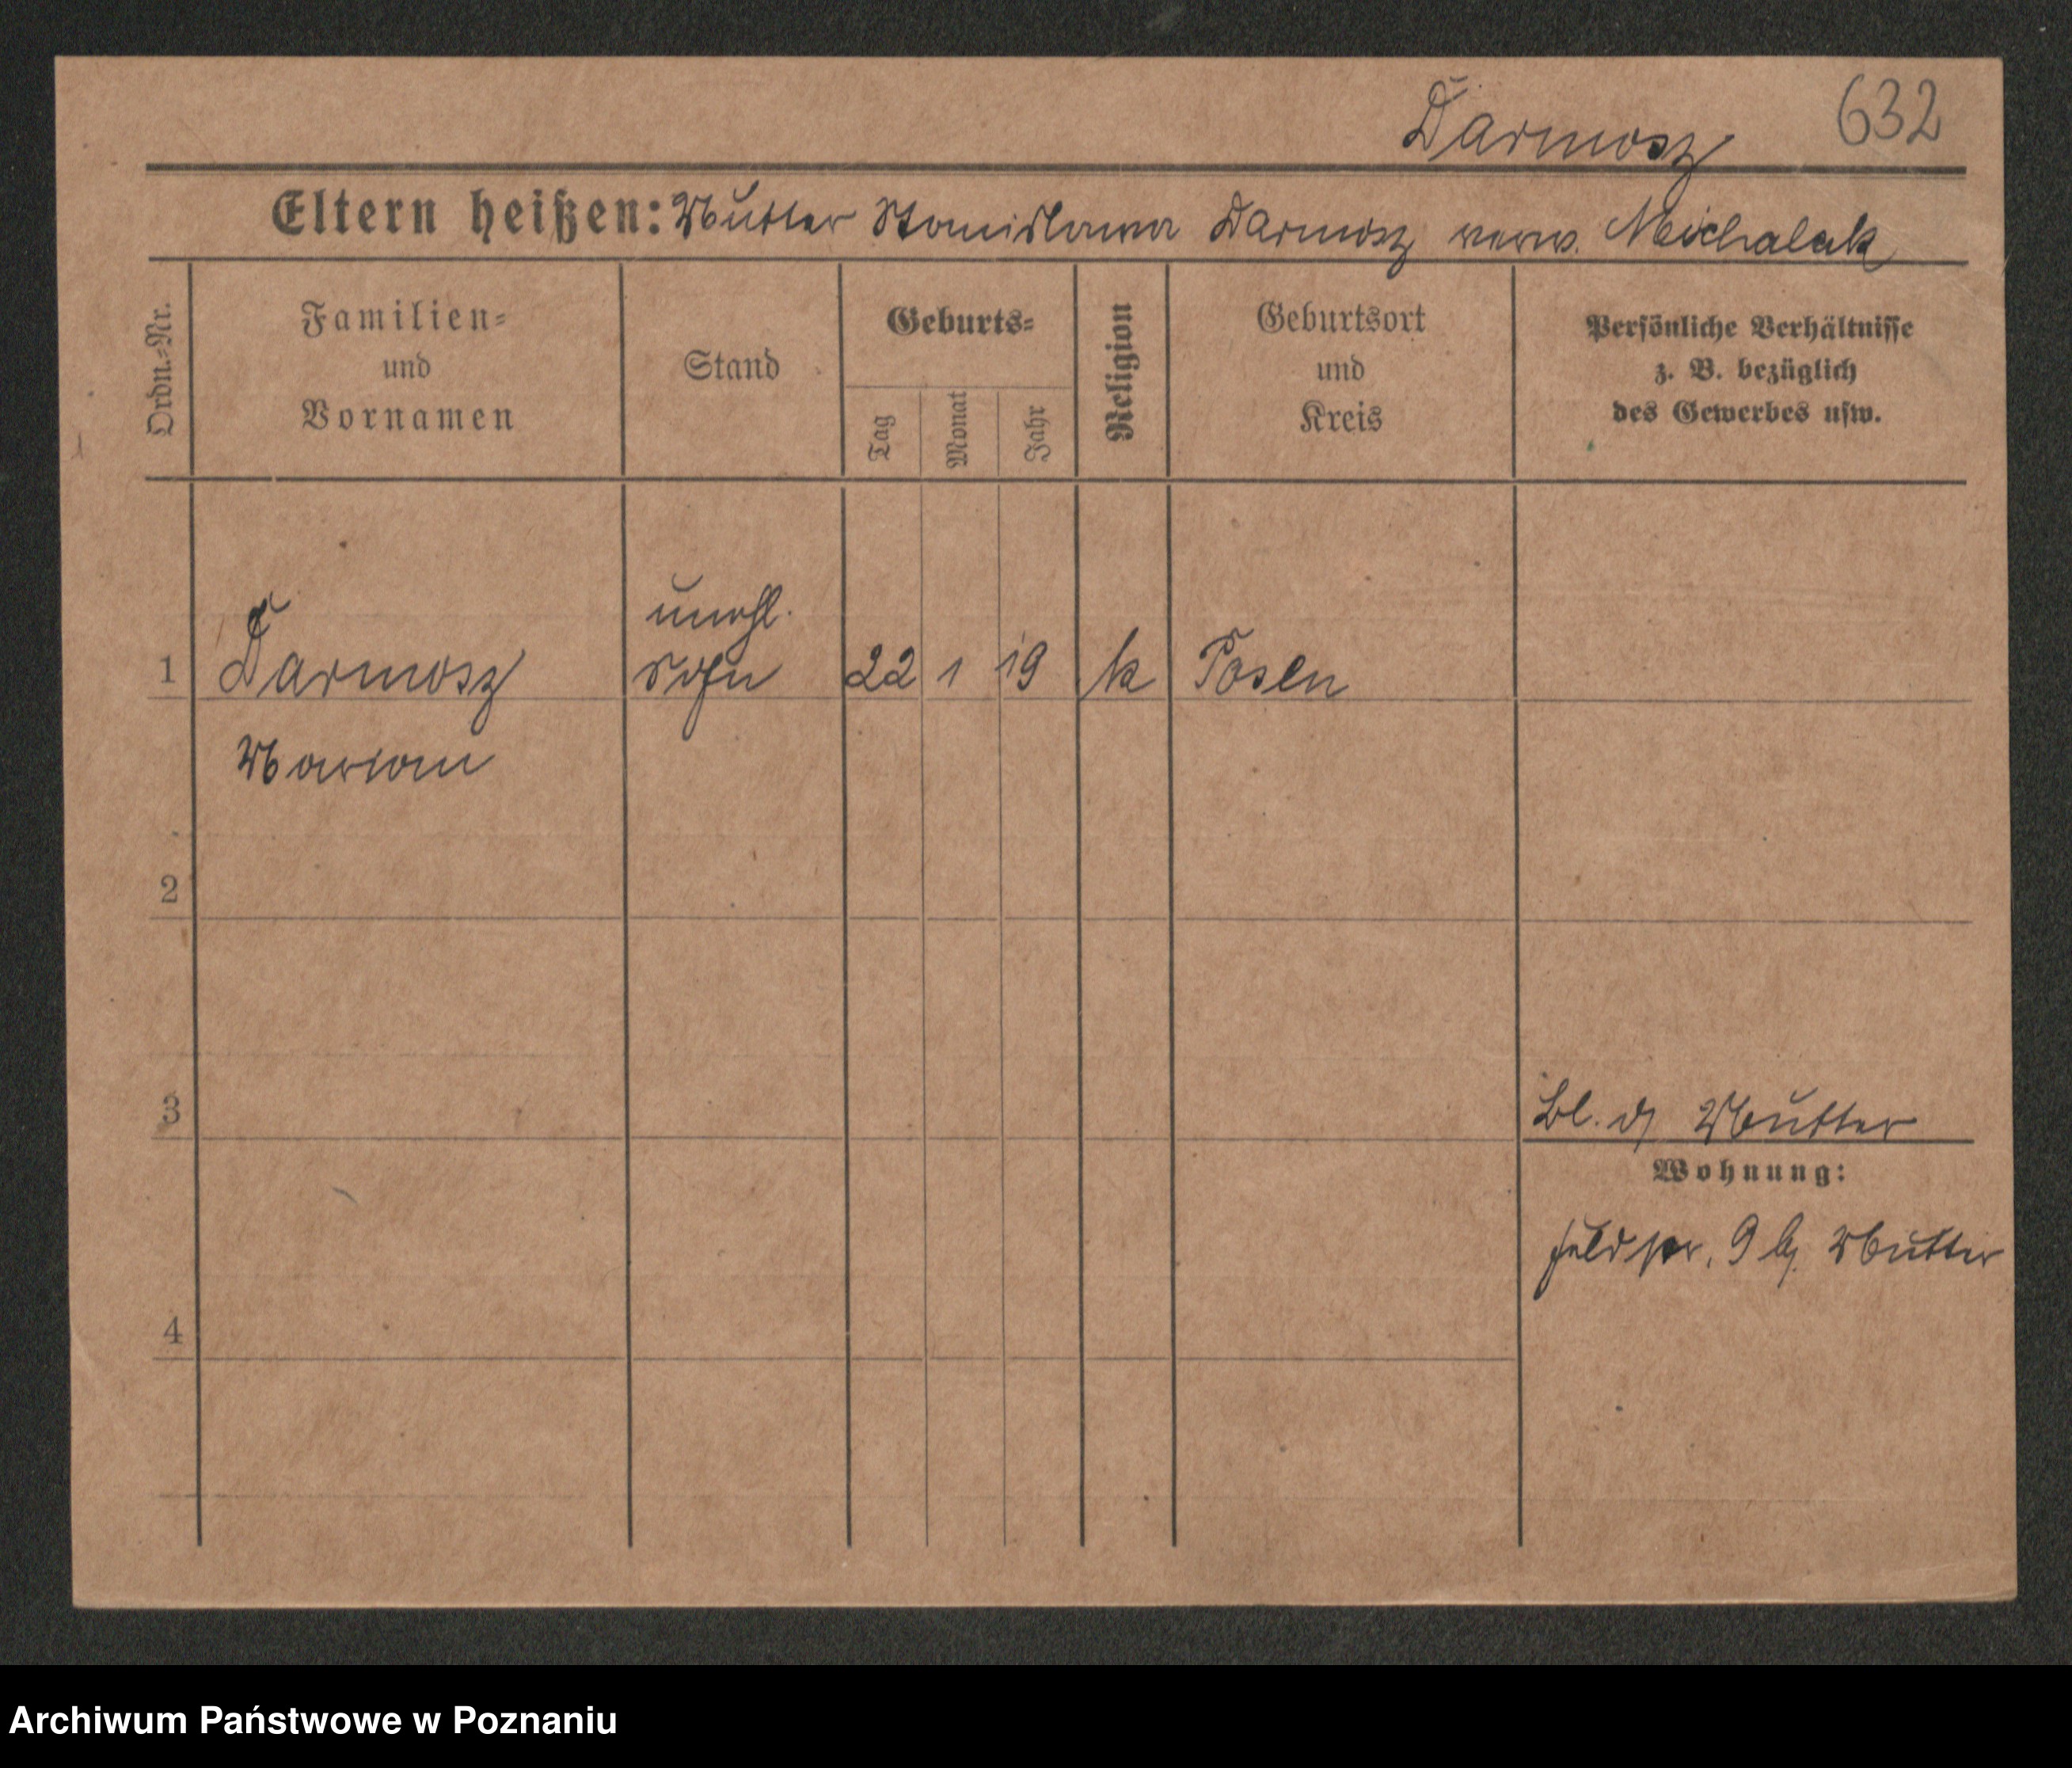 Darmosz 632
Eltern heißen: Mutter Stanislawa Darmosz verw. Michalak
Ordn.-Nr.
Familien-
und
Vornamen
Stand
Geburts-
Tag
Monat
Jahr
Religion
Geburtsort
und
Kreis
Persönliche Verhältnisse
z. B. bezüglich
des Gewerbes usw.
unehl.
1 Darmosz Sohn 22 1 19 k Posen
Marian
2
3
Bl. d. Mutter
Wohnung:
Feldstr. 9 b. Mutter
4
Archiwum Państwowe w Poznaniu